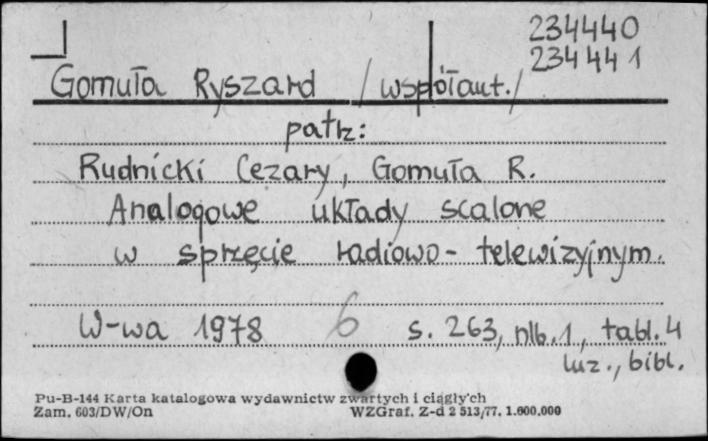 234440
234441
Gomuła Ryszard /współaut./
patrz:
Rudnicki Cezary, Gomuła R.
Analogowe układy scalone
w sprzęcie radiowo-telewizyjnym.
W-wa 1978 6 s. 263, nlb. 1, tabl. 4
luz., bibl.
Pu-B-144 Karta katalogowa wydawnictw zwartych i ciągłych
Zam. 603/DW/On WZGraf. Z-d 2 513/77. 1.600.000